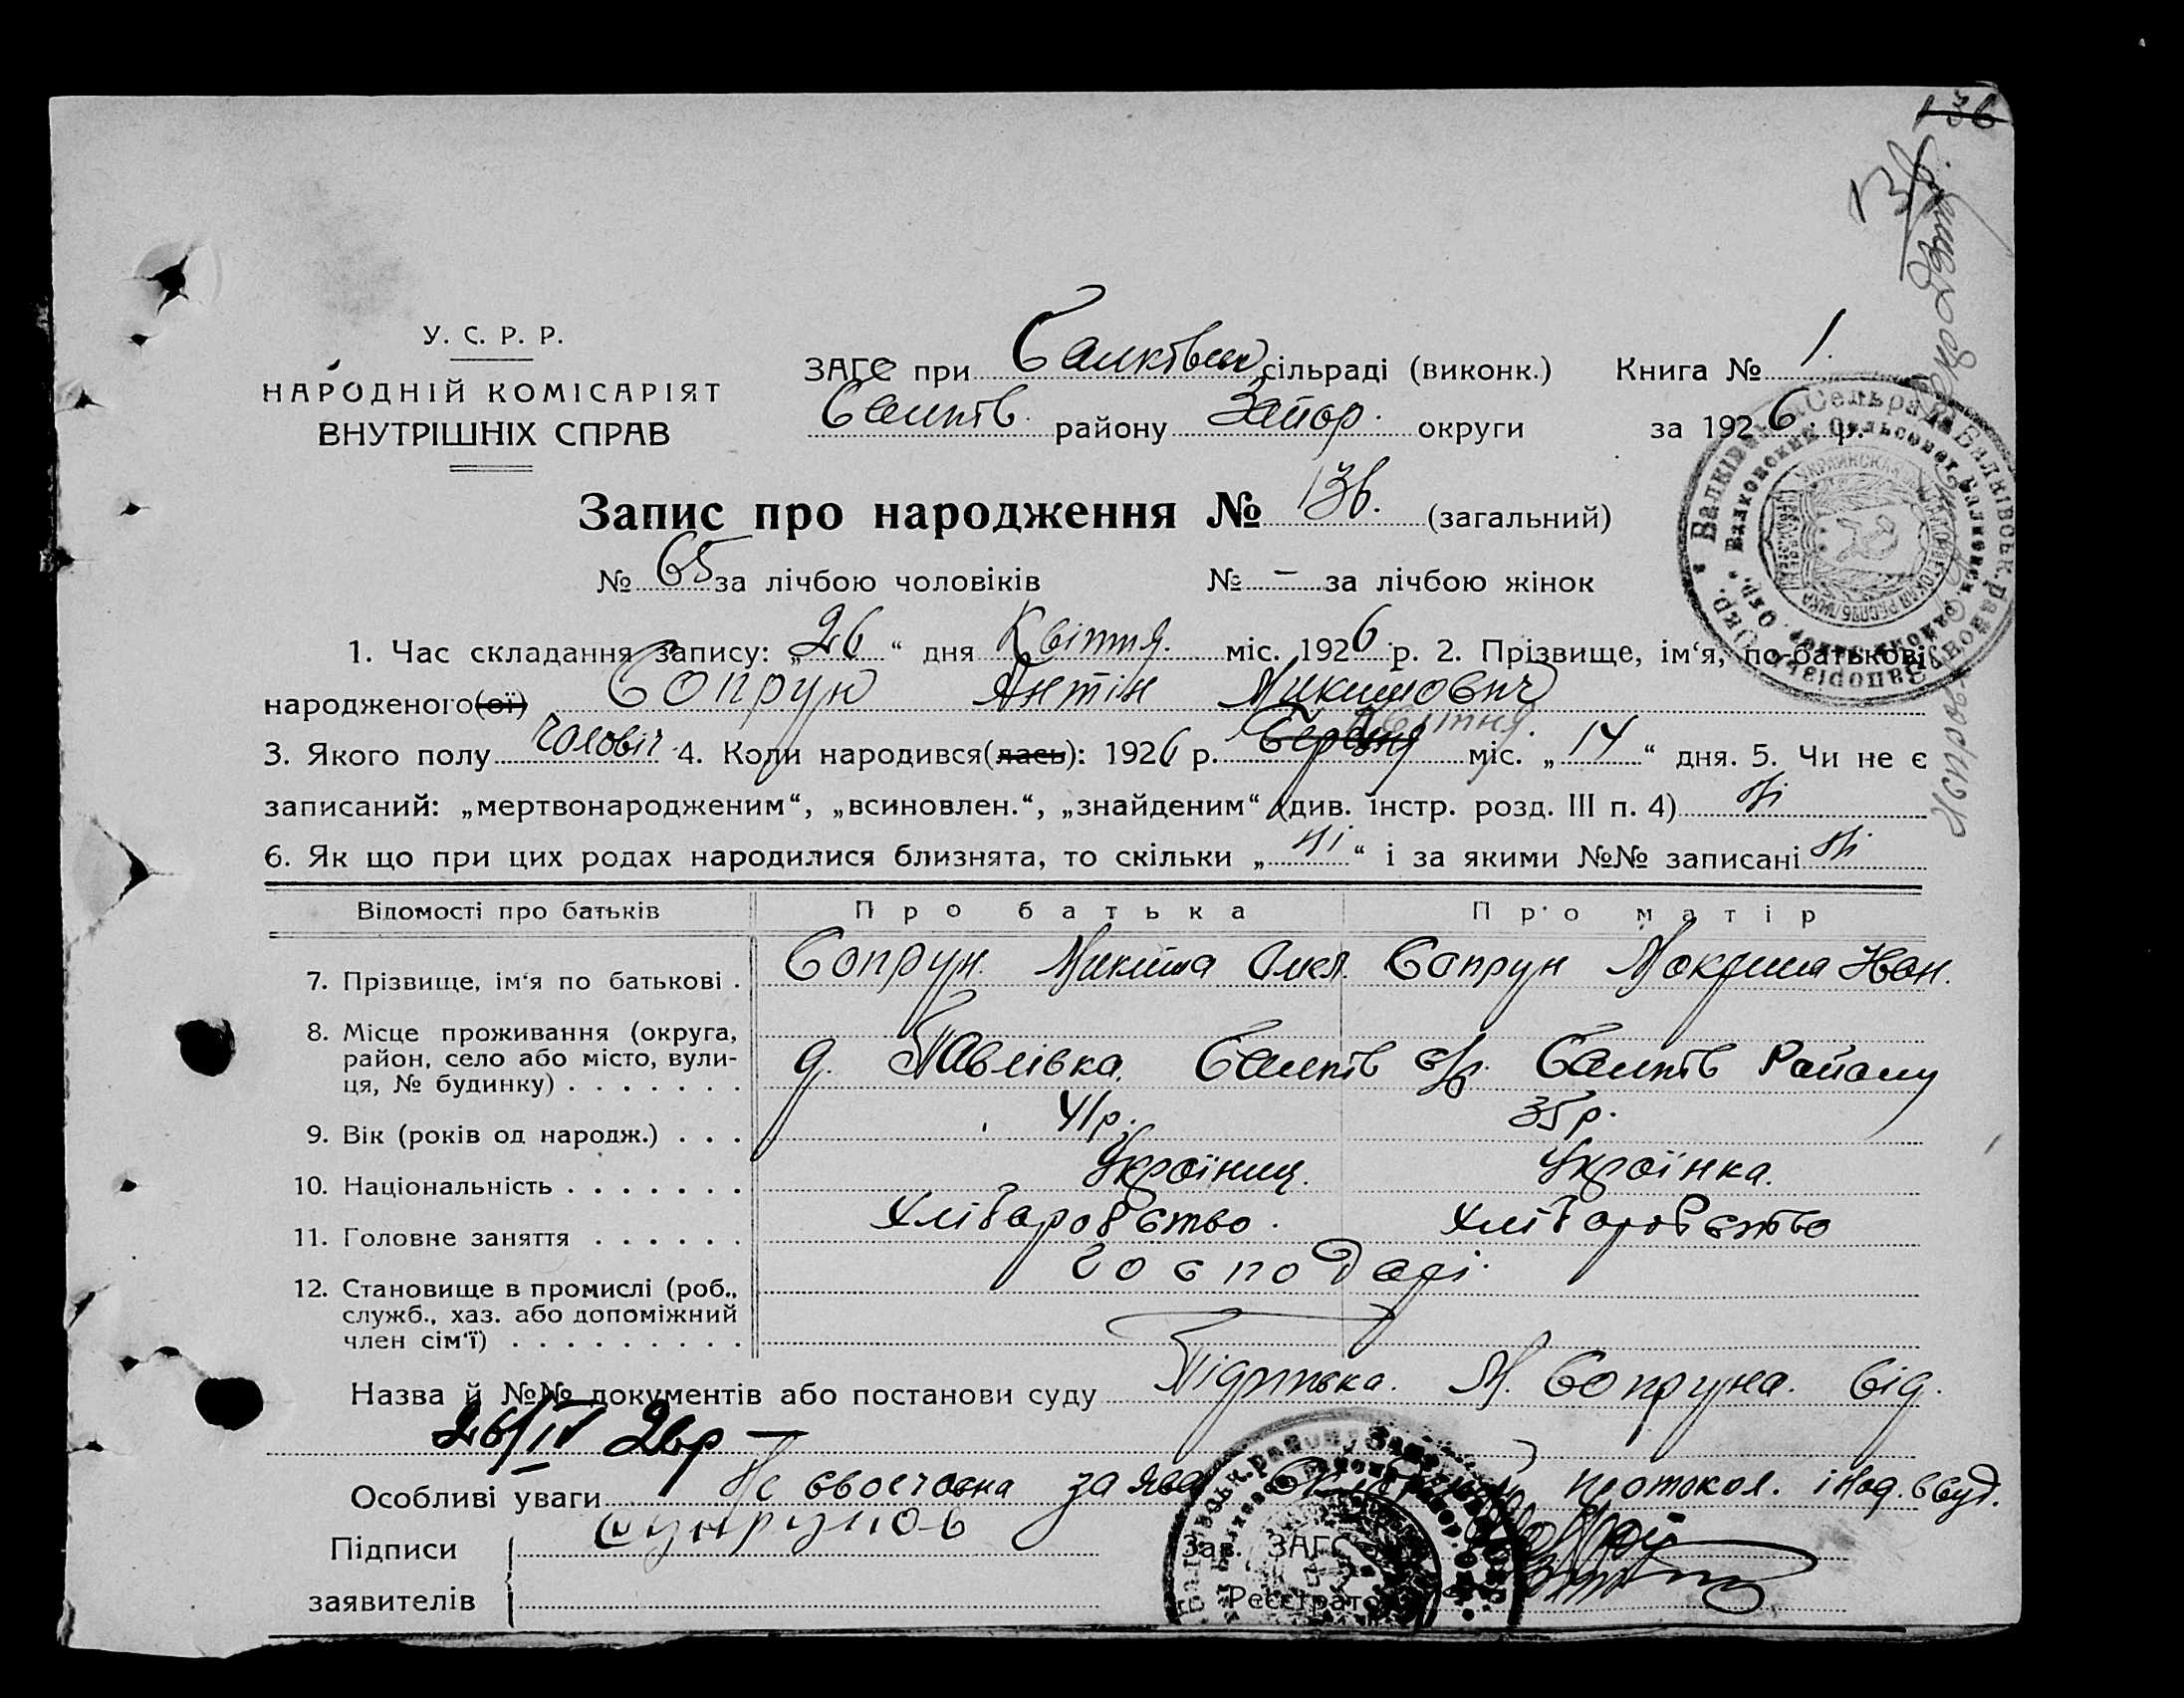 136
136.
У. С. Р. Р.
НАРОДНІЙ КОМІСАРІЯТ
ВНУТРІШНІХ СПРАВ
ЗАГС при сільраді (виконк.) Книга № 1.
району Запор. округи за 1926 р.
Запис про народження № 136. (загальний)
№ 65 за лічбою чоловіків № – за лічбою жінок
1. Час складання запису: „26“ дня Квітня. міс. 1926 р. 2. Прізвище, ім‘я, по-батькові
народженого(ої) Сопрун Антін Микитович
Квітня.
3. Якого полу Чоловіч. 4. Коли народився(лась): 1926 р. Березня міс. „14“ дня. 5. Чи не є
записаний: „мертвонародженим“, „всиновлен.“, „знайденим“ (див. інстр. розд. III п. 4) Ні
6. Як що при цих родах народилися близнята, то скільки „ні“ і за якими №№ записані ні
Відомості про батьків Про батька Про матір
7. Прізвище, ім‘я по батькові . Сопрун Микита Сопрун Мокрина Іван.
8. Місце проживання (округа,
район, село або місто, вули-
ця, № будинку) . . . . . . . Павлівка. Району
9. Вік (років од народж.) . . . 41р. 35р.
10. Національність . . . . . . . Українец. Українка.
11. Головне заняття . . . . . . Хліборобство. Хліборобство
12. Становище в промислі (роб.,
служб., хаз. або допоміжний
член сім‘ї) . . . . . . . . . господарі.
Назва й №№ документів або постанови суду Підписка. М. Сопруна. від.
26/IV 26р —
Особливі уваги Не своєчасна заява протокол.
Підписи
заявителів
Зав. ЗАГС
Реєстратор